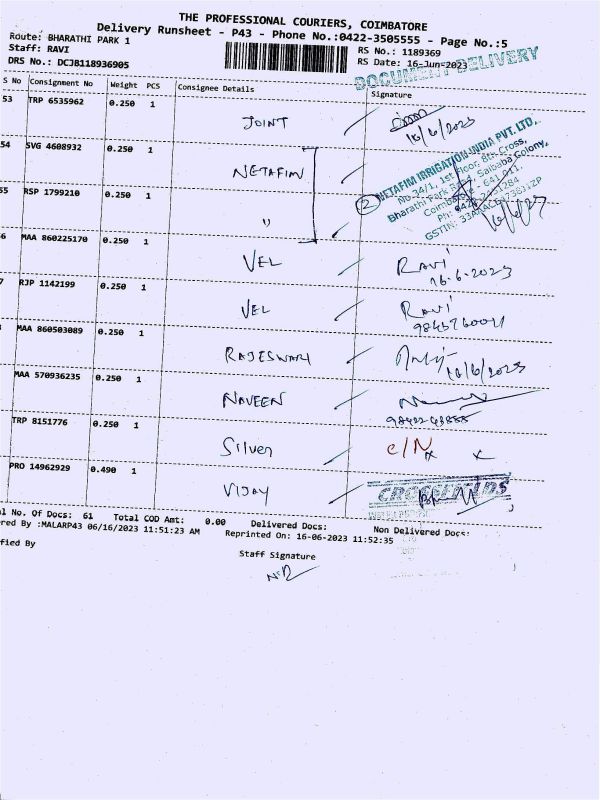 THE PROFESSIONAL COURIERS, COIMBATORE
Delivery Runsheet - P43 - Phone No.:0422-3505555 - Page No.:5
Route: BHARATHI PARK 1
RS No.: 1189369
Staff: RAVI
RS Date: 16-Jun-2023
DRS No.: DCJB118936905
DOCUMENT DELIVERY
S No Consignment No Weight PCS Consignee Details Signature
53 TRP 6535962 0.250 1 JOINT
16/6/2023
54 SVG 4608932 0.250 1 NETAFIM
NETAFIM IRRIGATION INDIA PVT. LTD.,
No.34/1, 1st Floor, 8th Cross,
Bharathi Park Road, Saibaba Colony,
2
55 RSP 1799210 0.250 1 "
6 MAA 860225170 0.250 1 VEL RAVI
16-6-2023
7 RJP 1142199 0.250 1 VEL RAVI
MAA 860503089 0.250 1 RAJESWARI
16/6/2023
MAA 570936235 0.250 1 NAVEEN
TRP 8151776 0.250 1 Silver C/N
PRO 14962929 0.490 1 VIJAY
CROSSFIELDS
al No. Of Docs: 61 Total COD Amt: 0.00 Delivered Docs: Non Delivered Docs:
red By :MALARP43 06/16/2023 11:51:23 AM Reprinted On: 16-06-2023 11:52:35
fied By
Staff Signature